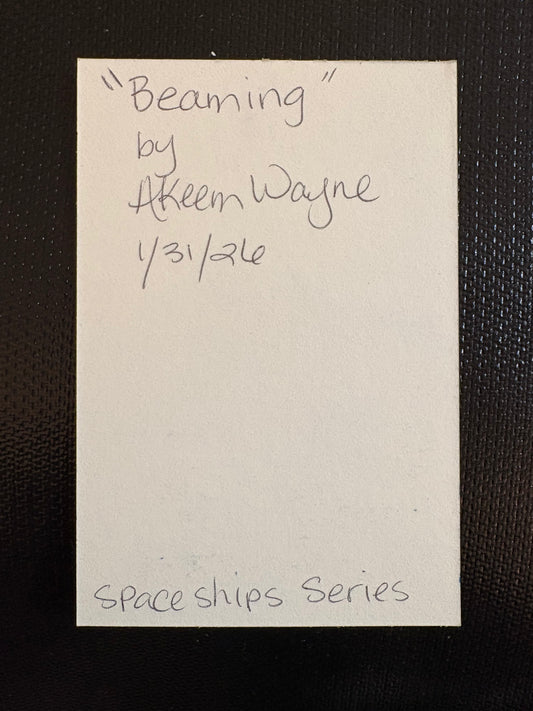 "Beaming"
by
Akeem Wayne
1/31/26
Spaceships Series